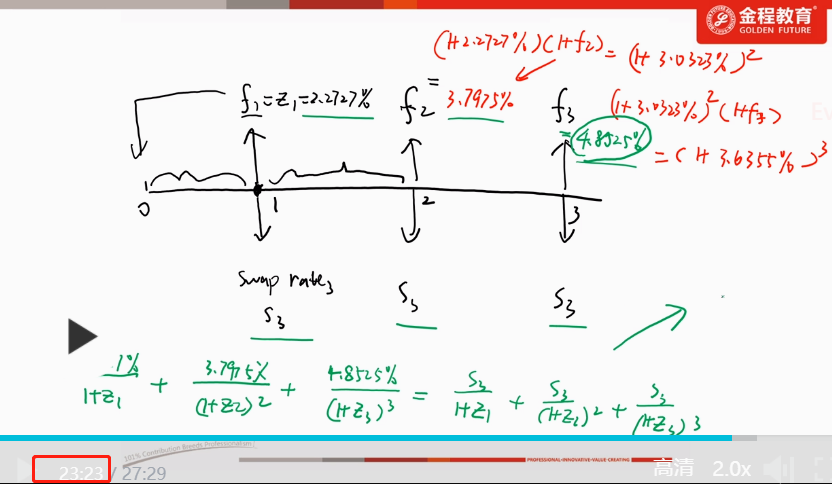 金程教育
GOLDEN FUTURE
(1+2.2727%)(1+f2) = (1+3.0323%)²
f₁=Z₁=2.2727% f₂ = 3.7975% f₃ = 4.8525%
(1+3.0323%)²(1+f₃)
= (1+3.6355%)³
0 1 2 3
Swap rate₃
S₃ S₃ S₃
1%/1+Z₁ + 3.7975%/(1+Z₂)² + 4.8525%/(1+Z₃)³ = S₃/1+Z₁ + S₃/(1+Z₂)² + S₃/(1+Z₃)³
101% Contribution Breeds Professionalism
PROFESSIONAL·INNOVATIVE·VALUE CREATING
23:23 / 27:29 高清 2.0x